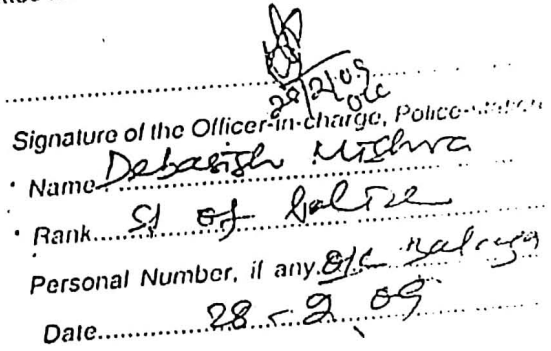 28/2/09
O/C
Signature of the Officer-in-charge, Police-
Name Debasish Mishra
Rank SI of Police
Personal Number, if any. O/C
Date 28-2-09